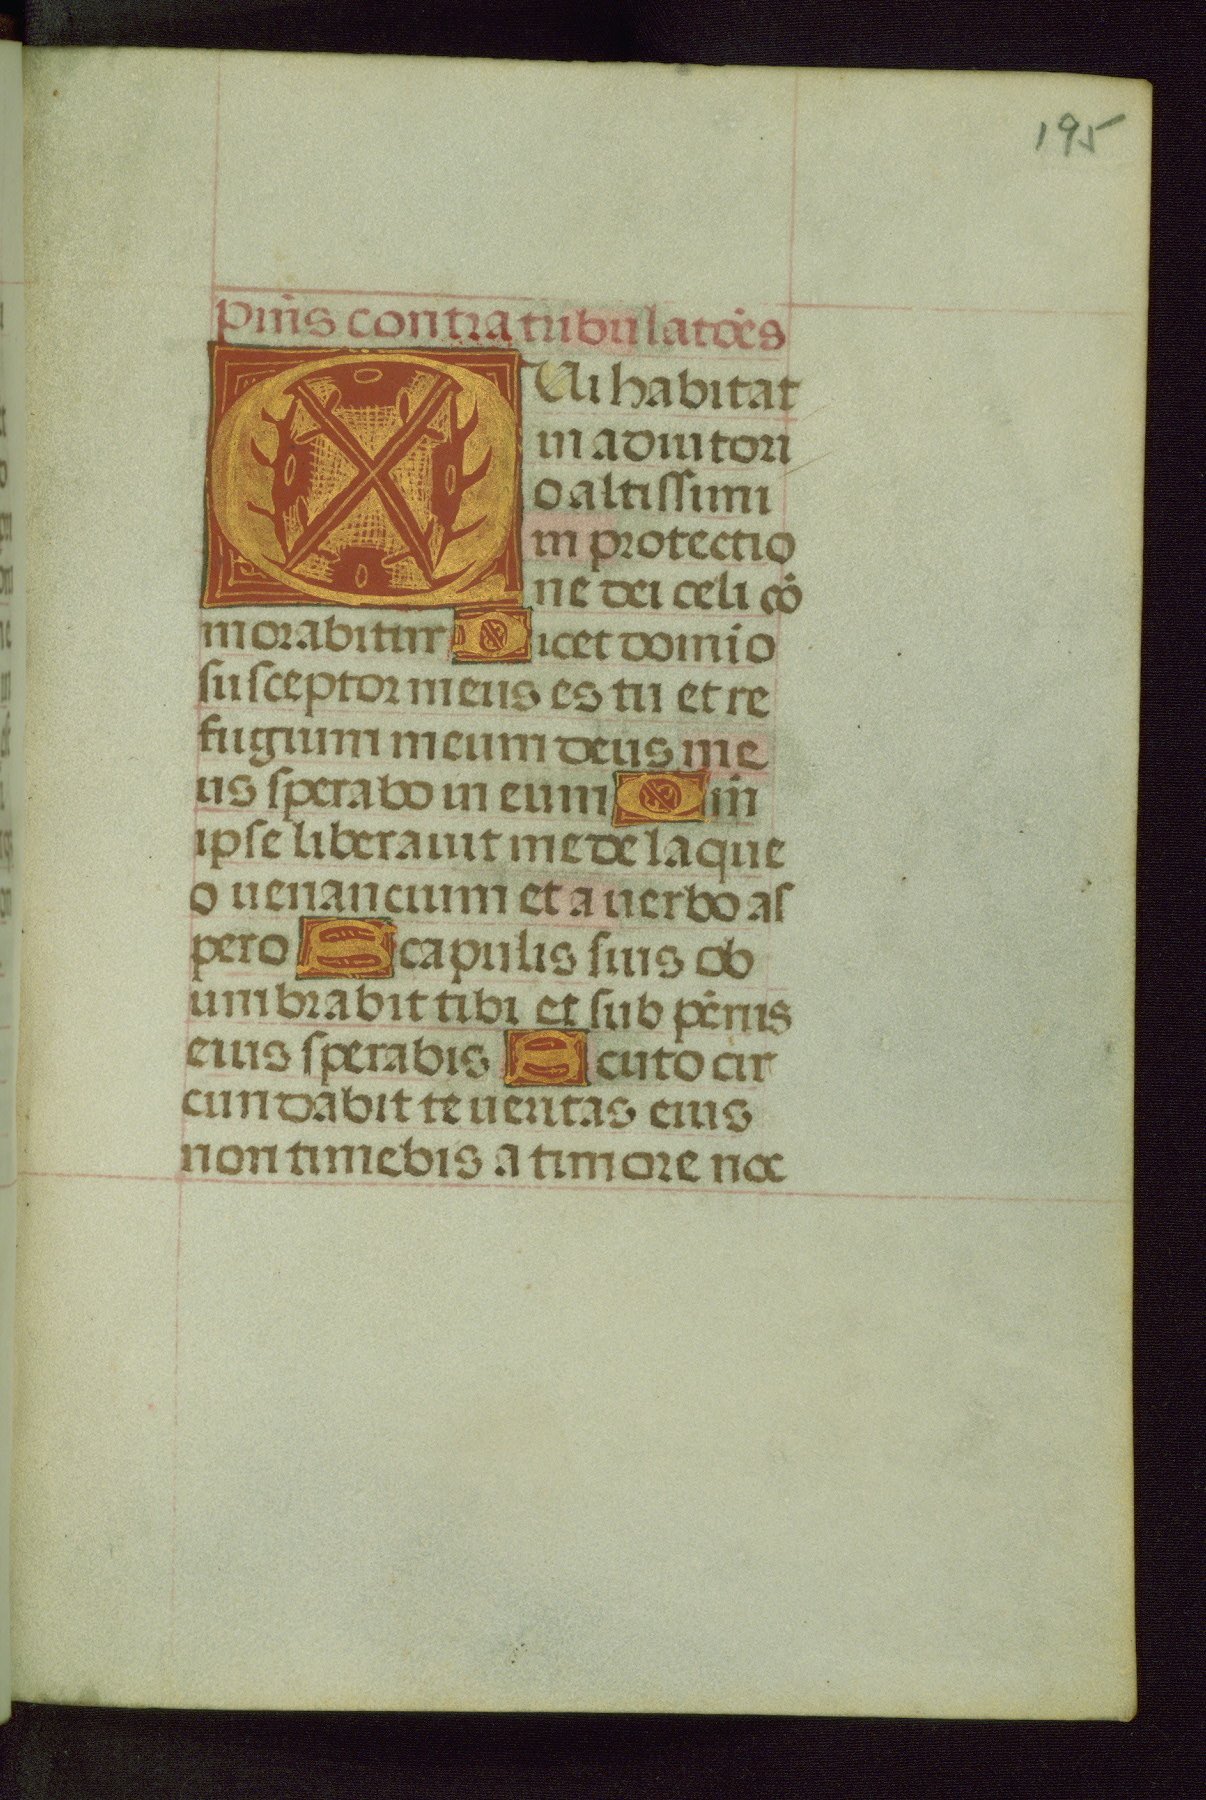 195
Pm̄s contra tribulatōes
QUi habitat
in adiutori
o altissimi
in protectio
ne dei celi cō
morabitur Dicet domīo
susceptor meus es tu et re
fugium meum deus me
us sperabo in eum Qm̄
ipse liberauit me de laque
o uenancium et a uerbo as
pero Scapulis suis ob
umbrabit tibi et sub pēnis
eius sperabis Scuto cir
cundabit te ueritas eius
non timebis a timore noc